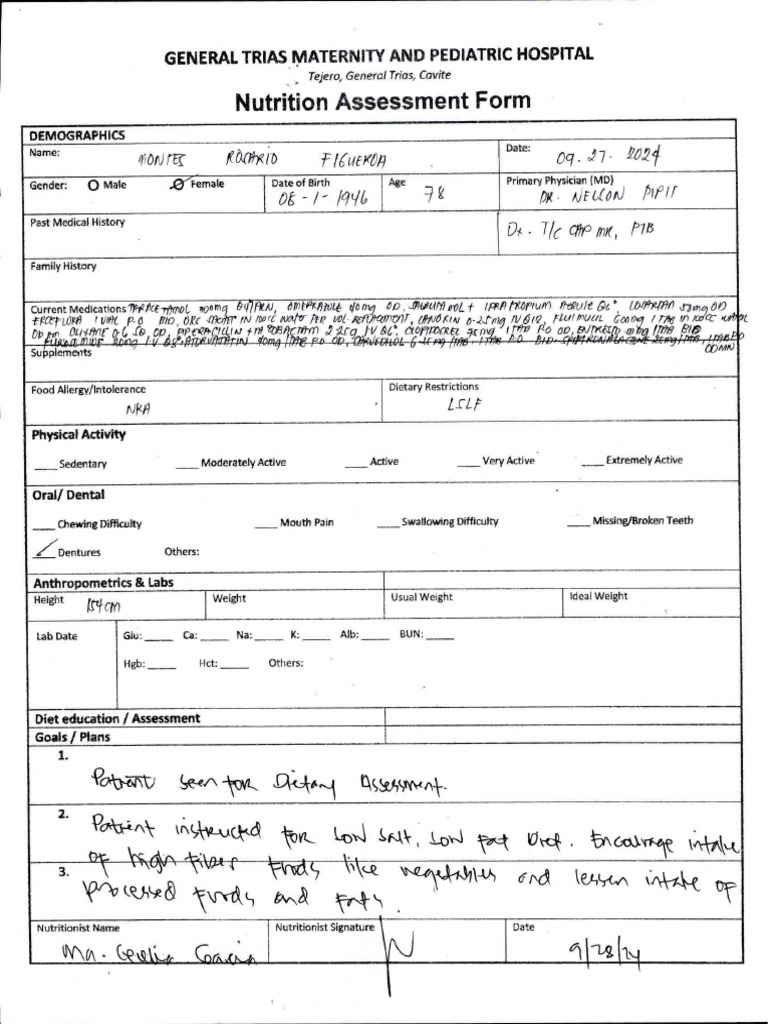 GENERAL TRIAS MATERNITY AND PEDIATRIC HOSPITAL
Tejero, General Trias, Cavite
Nutrition Assessment Form
DEMOGRAPHICS
Name: MONTES ROSARIO FIGUEROA Date: 09.27.2024
Gender: Male Female Date of Birth 08-1-1946 Age 78 Primary Physician (MD) DR. NELSON PIPIT
Past Medical History Dx. T/C CAP MR, PTB
Family History
Current Medications PARACETAMOL 300mg OMEPRAZOLE 40mg OD, SALBUTAMOL + IPRATROPIUM NEBULE Q6° LOSARTAN 50mg OD
ERCEFLORA 1 VIAL P.O BID, ORS SACHET IN 100cc WATER PER VOL. REPLACEMENT, LANOXIN 0.25mg FLUIMUCIL 600mg 1 TAB IN 100cc WATER
OD PIPERACILLIN + TAZOBACTAM 2.25g IV Q6° CLOPIDOGREL 75mg 1 TAB P.O OD, ENTRESTO TAB BID
FUROSEMIDE 20mg IV Q8° ATORVASTATIN 40mg/TAB P.O OD, CARVEDILOL 6.25mg/TAB 1 TAB P.O BID SPIRONOLACTONE 25mg/TAB, 1 TAB P.O
Supplements
Food Allergy/Intolerance Dietary Restrictions
NKA LSLF
Physical Activity
____ Sedentary ____ Moderately Active ____ Active ____ Very Active ____ Extremely Active
Oral/ Dental
____ Chewing Difficulty ____ Mouth Pain ____ Swallowing Difficulty ____ Missing/Broken Teeth
Dentures Others:
Anthropometrics & Labs
Height 154cm Weight Usual Weight Ideal Weight
Lab Date Glu: _____ Ca: _____ Na: _____ K: _____ Alb: _____ BUN: _____
Hgb: _____ Hct: _____ Others:
Diet education / Assessment
Goals / Plans
1.
Patient seen for Dietary Assessment.
2. Patient instructed for Low Salt, Low Fat Diet. Encourage intake
of high fiber foods like vegetables and lessen intake of
3. processed foods and fats.
Nutritionist Name Nutritionist Signature Date
Ma. Cecilia Garcia 9/28/24